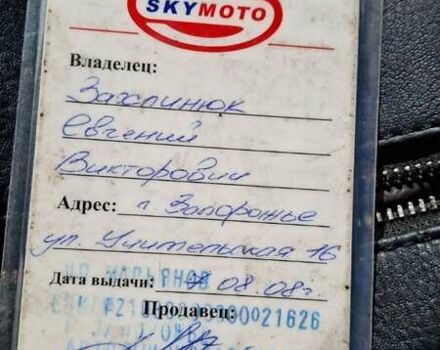 SKYMOTO
Владелец:
Захлинюк
Евгений
Викторович
Адрес: г Запорожье
ул. Учительская 16
Дата выдачи: 08.08г.
Продавец: